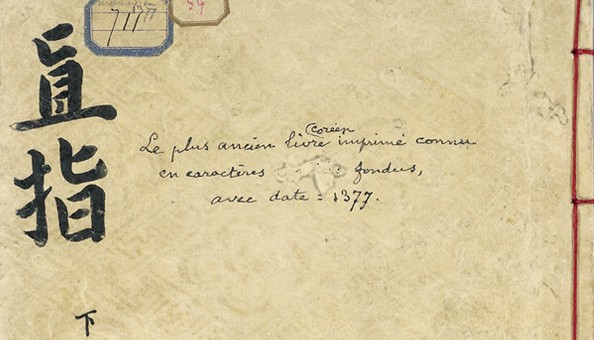 直指
下
711
59
Le plus ancien livre coréen imprimé connu
en caractères fondus,
avec date = 1377.